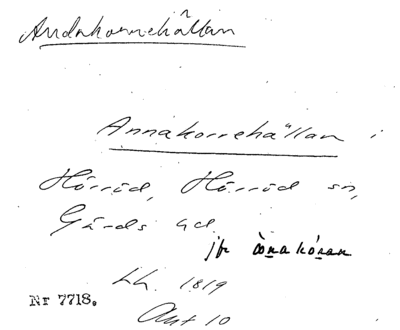 Andakornehållan
Annakorrehällan i
Hörröd, Hörröd sn,
Gärds hd
jfr
Lh. 1819
Nr 7718.
Akt 10